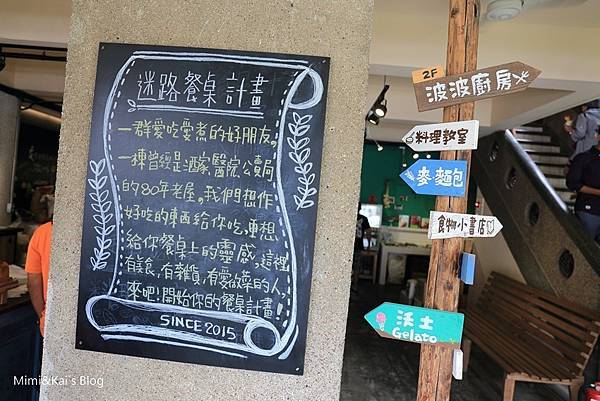 迷路餐桌計畫
一群愛吃愛煮的好朋友。
一棟曾經是酒家、醫院、公賣局
的80年老屋。我們想作
好吃的東西給你吃,更想
給你餐桌上的靈感,這裡
有美食,有雜貨,有愛做菜的人,
來吧!開始你的餐桌計畫!
SINCE2015
2F
波波廚房
料理教室
麥麵包
食物小書店
沃土
Gelato
Mimi&Kai`s Blog